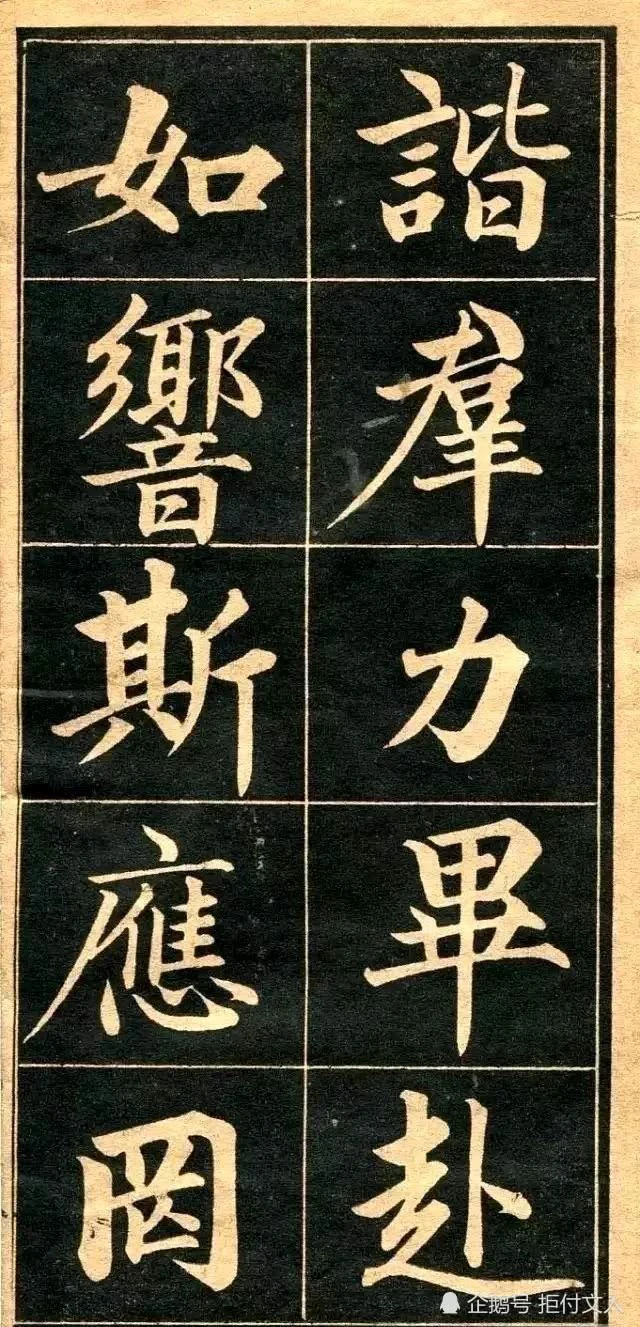 諧羣力畢赴
如響斯應罔
企鹅号 拒付文人